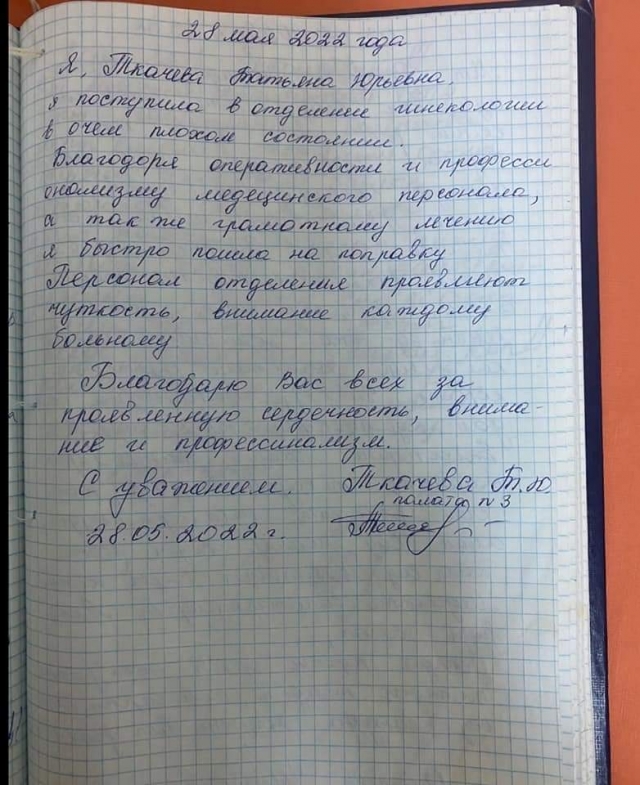 28 мая 2022 года
Я, Ткачева Татьяна Юрьевна,
я поступила в отделение гинекологии
в очем плохом состоянии.
Благодоря оперативности и професси
онализму медецинского персонала,
а так же грамотному лечению
я быстро пошла на поправку
Персонал отделения проявляют
чуткость, внимание каждому
больному
Благодарю Вас всех за
проявленную сердечность, внима-
ние и профессинализм.
С уважением. Ткачева Т.Ю.
палата N3
28.05.2022 г.